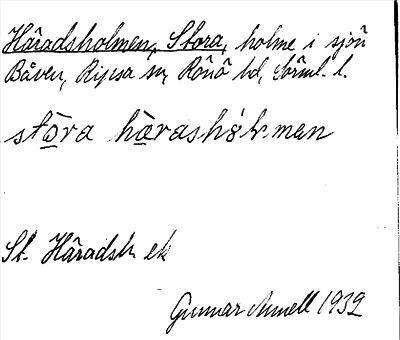 Häradsholmen, Stora, holme i sjön
Båven, Ripsa sn, Rönö hd, Sörml. l.
stora hàrashólmen
St. Häradsh. ek
Gunnar 1932